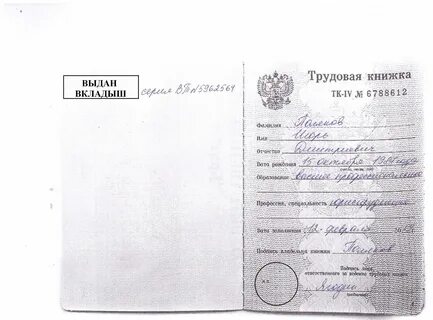 ВЫДАН
ВКЛАДЫШ
серия ВТ №5962564
Трудовая книжка
ТК-IV № 6788612
Фамилия Поляков
Имя Игорь
Отчество Дмитриевич
Дата рождения 15 октября
Образование высшее профессиональное
Профессия, специальность юриспруденция
Дата заполнения 12 февраля
Подпись владельца книжки Поляков
Подпись лица,
ответственного за ведение трудовых книжек
М.П.